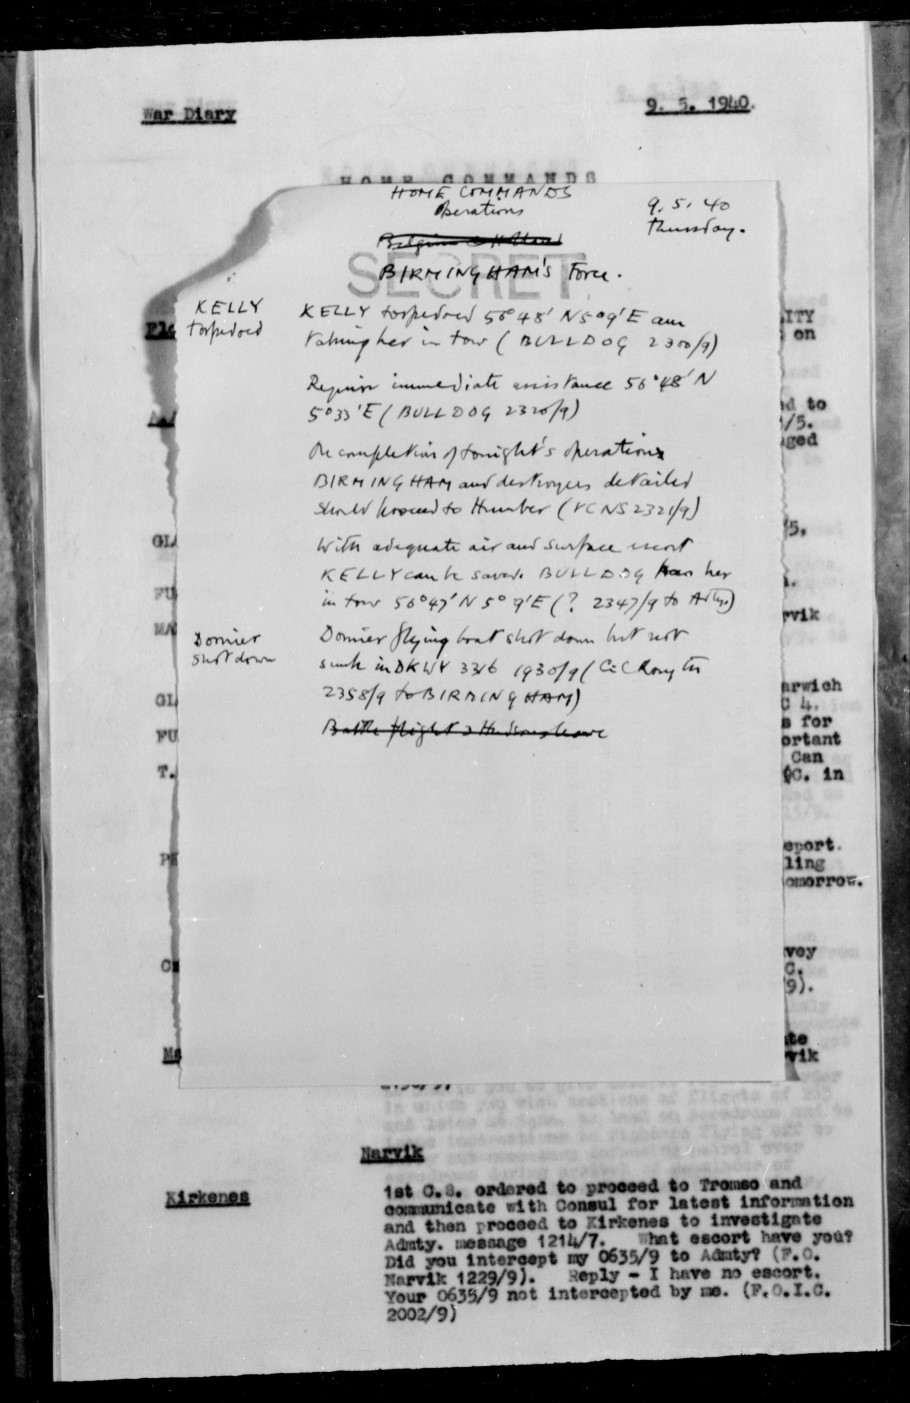 War Diary
9. 5. 1940.
HOME COMMANDS
HOME COMMANDS
Operations
9.5.40
Thursday.
Belgium & Holland
SECRET
BIRMINGHAM'S Force.
KELLY
torpedoed
KELLY torpedoed 56°48' N 5°9'E am
taking her in tow (BULLDOG 2300/9)
Require immediate assistance 56°48' N
5°33'E (BULLDOG 2320/9)
On completion of tonight's operations
BIRMINGHAM and destroyers detailed
should proceed to Humber (VCNS 2321/9)
With adequate air and surface escort
KELLY can be saved. BULLDOG has her
in tow 56°47' N 5°9'E (? 2347/9 to Adty.)
Dornier
shot down
Dornier flying boat shot down but not
sunk in DKWY 3316 1930/9 (C in C Rosyth
2358/9 to BIRMINGHAM)
Battle flight & Hudsons leave
ITY
on
ed to
/5.
ged
/5.
rvik
arwich
C 4.
s for
ortant
Can
C. in
eport.
ling
omorrow.
vey
C.
9).
te
vik
GL
FU
MA
GL
FU
T.
PE
Narvik
Kirkenes
1st C.S. ordered to proceed to Tromso and
communicate with Consul for latest information
and then proceed to Kirkenes to investigate
Admty. message 1214/7. What escort have you?
Did you intercept my 0635/9 to Admty? (F.O.
Narvik 1229/9). Reply - I have no escort.
Your 0635/9 not intercepted by me. (F.O.I.C.
2002/9)